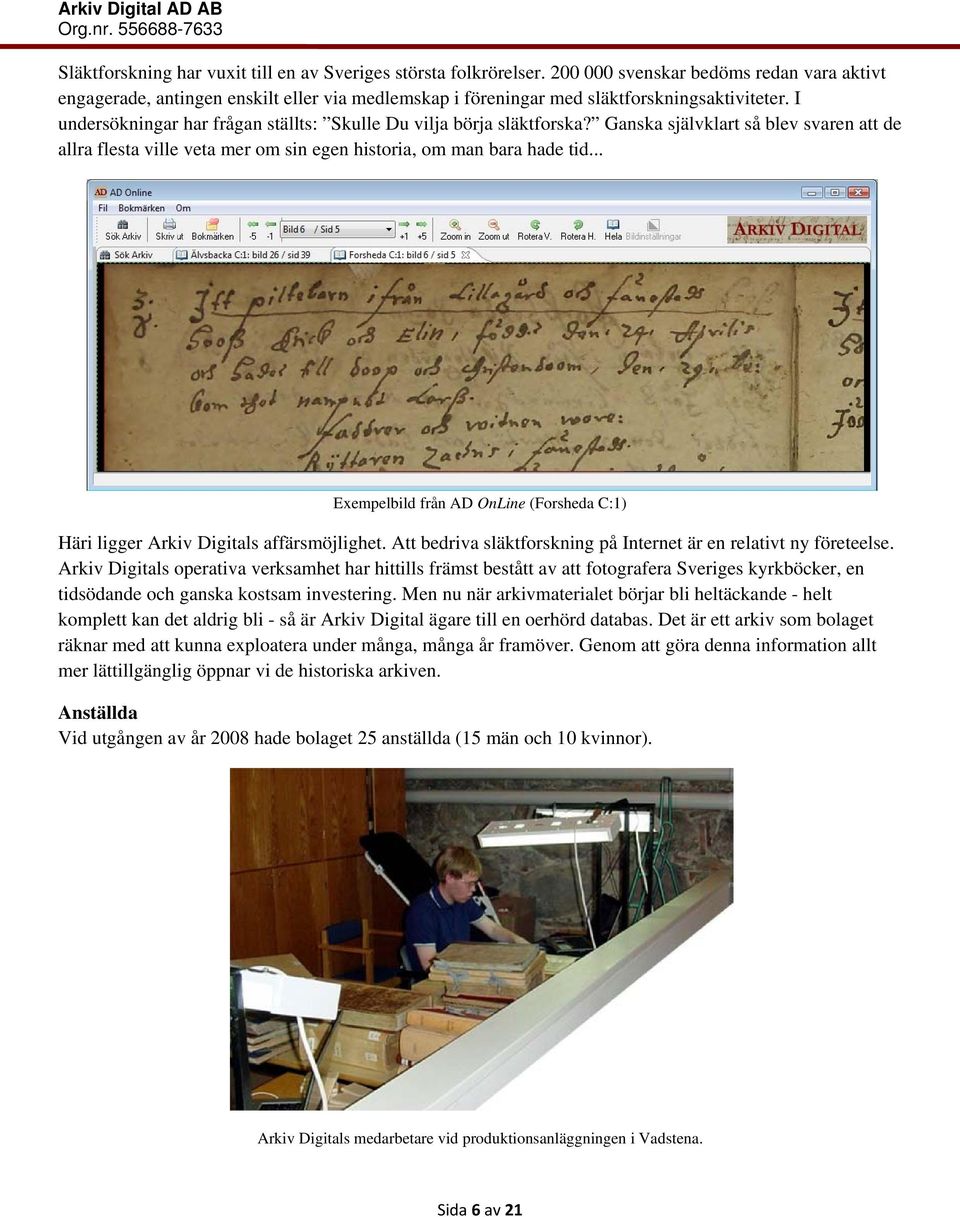 Arkiv Digital AD AB
Org.nr. 556688-7633
Släktforskning har vuxit till en av Sveriges största folkrörelser. 200 000 svenskar bedöms redan vara aktivt
engagerade, antingen enskilt eller via medlemskap i föreningar med släktforskningsaktiviteter. I
undersökningar har frågan ställts: ”Skulle Du vilja börja släktforska?” Ganska självklart så blev svaren att de
allra flesta ville veta mer om sin egen historia, om man bara hade tid...
AD AD Online
Fil Bokmärken Om
Sök Arkiv Skriv ut Bokmärken -5 -1 Bild 6 / Sid 5 +1 +5 Zoom in Zoom ut Rotera V. Rotera H. Hela Bildinställningar ARKIV DIGITAL
Sök Arkiv Älvsbacka C:1: bild 26 / sid 39 Forsheda C:1: bild 6 / sid 5
3. Itt piltebarn ifrån Lillagård och
och Elin, född den 24 Aprilis
doop och Christendoom, den 29
Lars
Faddrer och witnen wore:
Ryttaren
Exempelbild från AD OnLine (Forsheda C:1)
Häri ligger Arkiv Digitals affärsmöjlighet. Att bedriva släktforskning på Internet är en relativt ny företeelse.
Arkiv Digitals operativa verksamhet har hittills främst bestått av att fotografera Sveriges kyrkböcker, en
tidsödande och ganska kostsam investering. Men nu när arkivmaterialet börjar bli heltäckande - helt
komplett kan det aldrig bli - så är Arkiv Digital ägare till en oerhörd databas. Det är ett arkiv som bolaget
räknar med att kunna exploatera under många, många år framöver. Genom att göra denna information allt
mer lättillgänglig öppnar vi de historiska arkiven.
Anställda
Vid utgången av år 2008 hade bolaget 25 anställda (15 män och 10 kvinnor).
Arkiv Digitals medarbetare vid produktionsanläggningen i Vadstena.
Sida 6 av 21